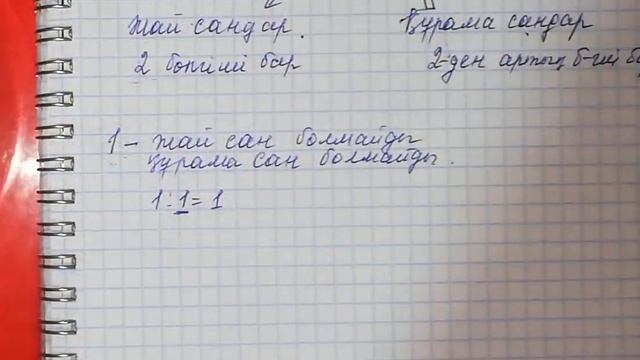 Жай сандар.
Құрама сандар
2 бөлгіші бар
2-ден артық б-гіші
1 – жай сан болмайды
құрама сан болмайды.
1:1=1